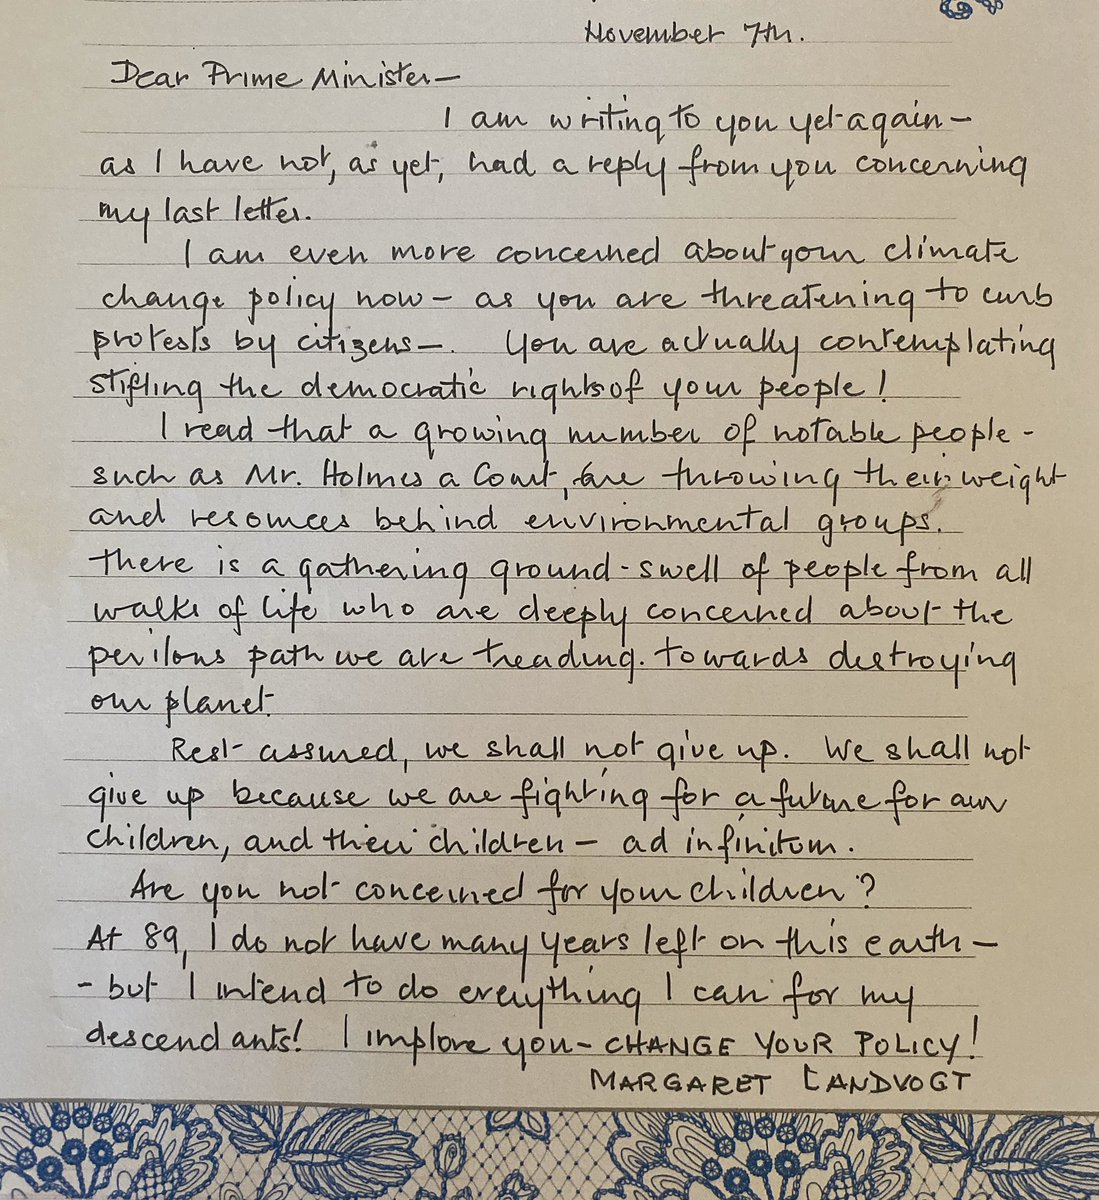 November 7th.
Dear Prime Minister—
I am writing to you yet again—
as I have not, as yet, had a reply from you concerning
my last letter.
I am even more concerned about your climate
change policy now— as you are threatening to curb
protests by citizens—. You are actually contemplating
stifling the democratic rights of your people!
I read that a growing number of notable people-
such as Mr. Holmes a Court, are throwing their weight
and resources behind environmental groups.
There is a gathering ground-swell of people from all
walks of life who are deeply concerned about the
perilous path we are treading. towards destroying
our planet.
Rest assured, we shall not give up. We shall not
give up because we are fighting for a future for our
children, and their children— ad infinitum.
Are you not concerned for your children?
At 89, I do not have many years left on this earth—
- but I intend to do everything I can for my
descendants! I implore you— CHANGE YOUR POLICY!
MARGARET LANDVOGT